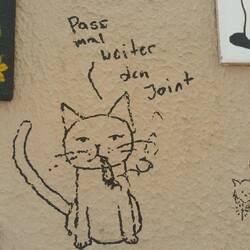 Pass
mal
weiter
den
Joint